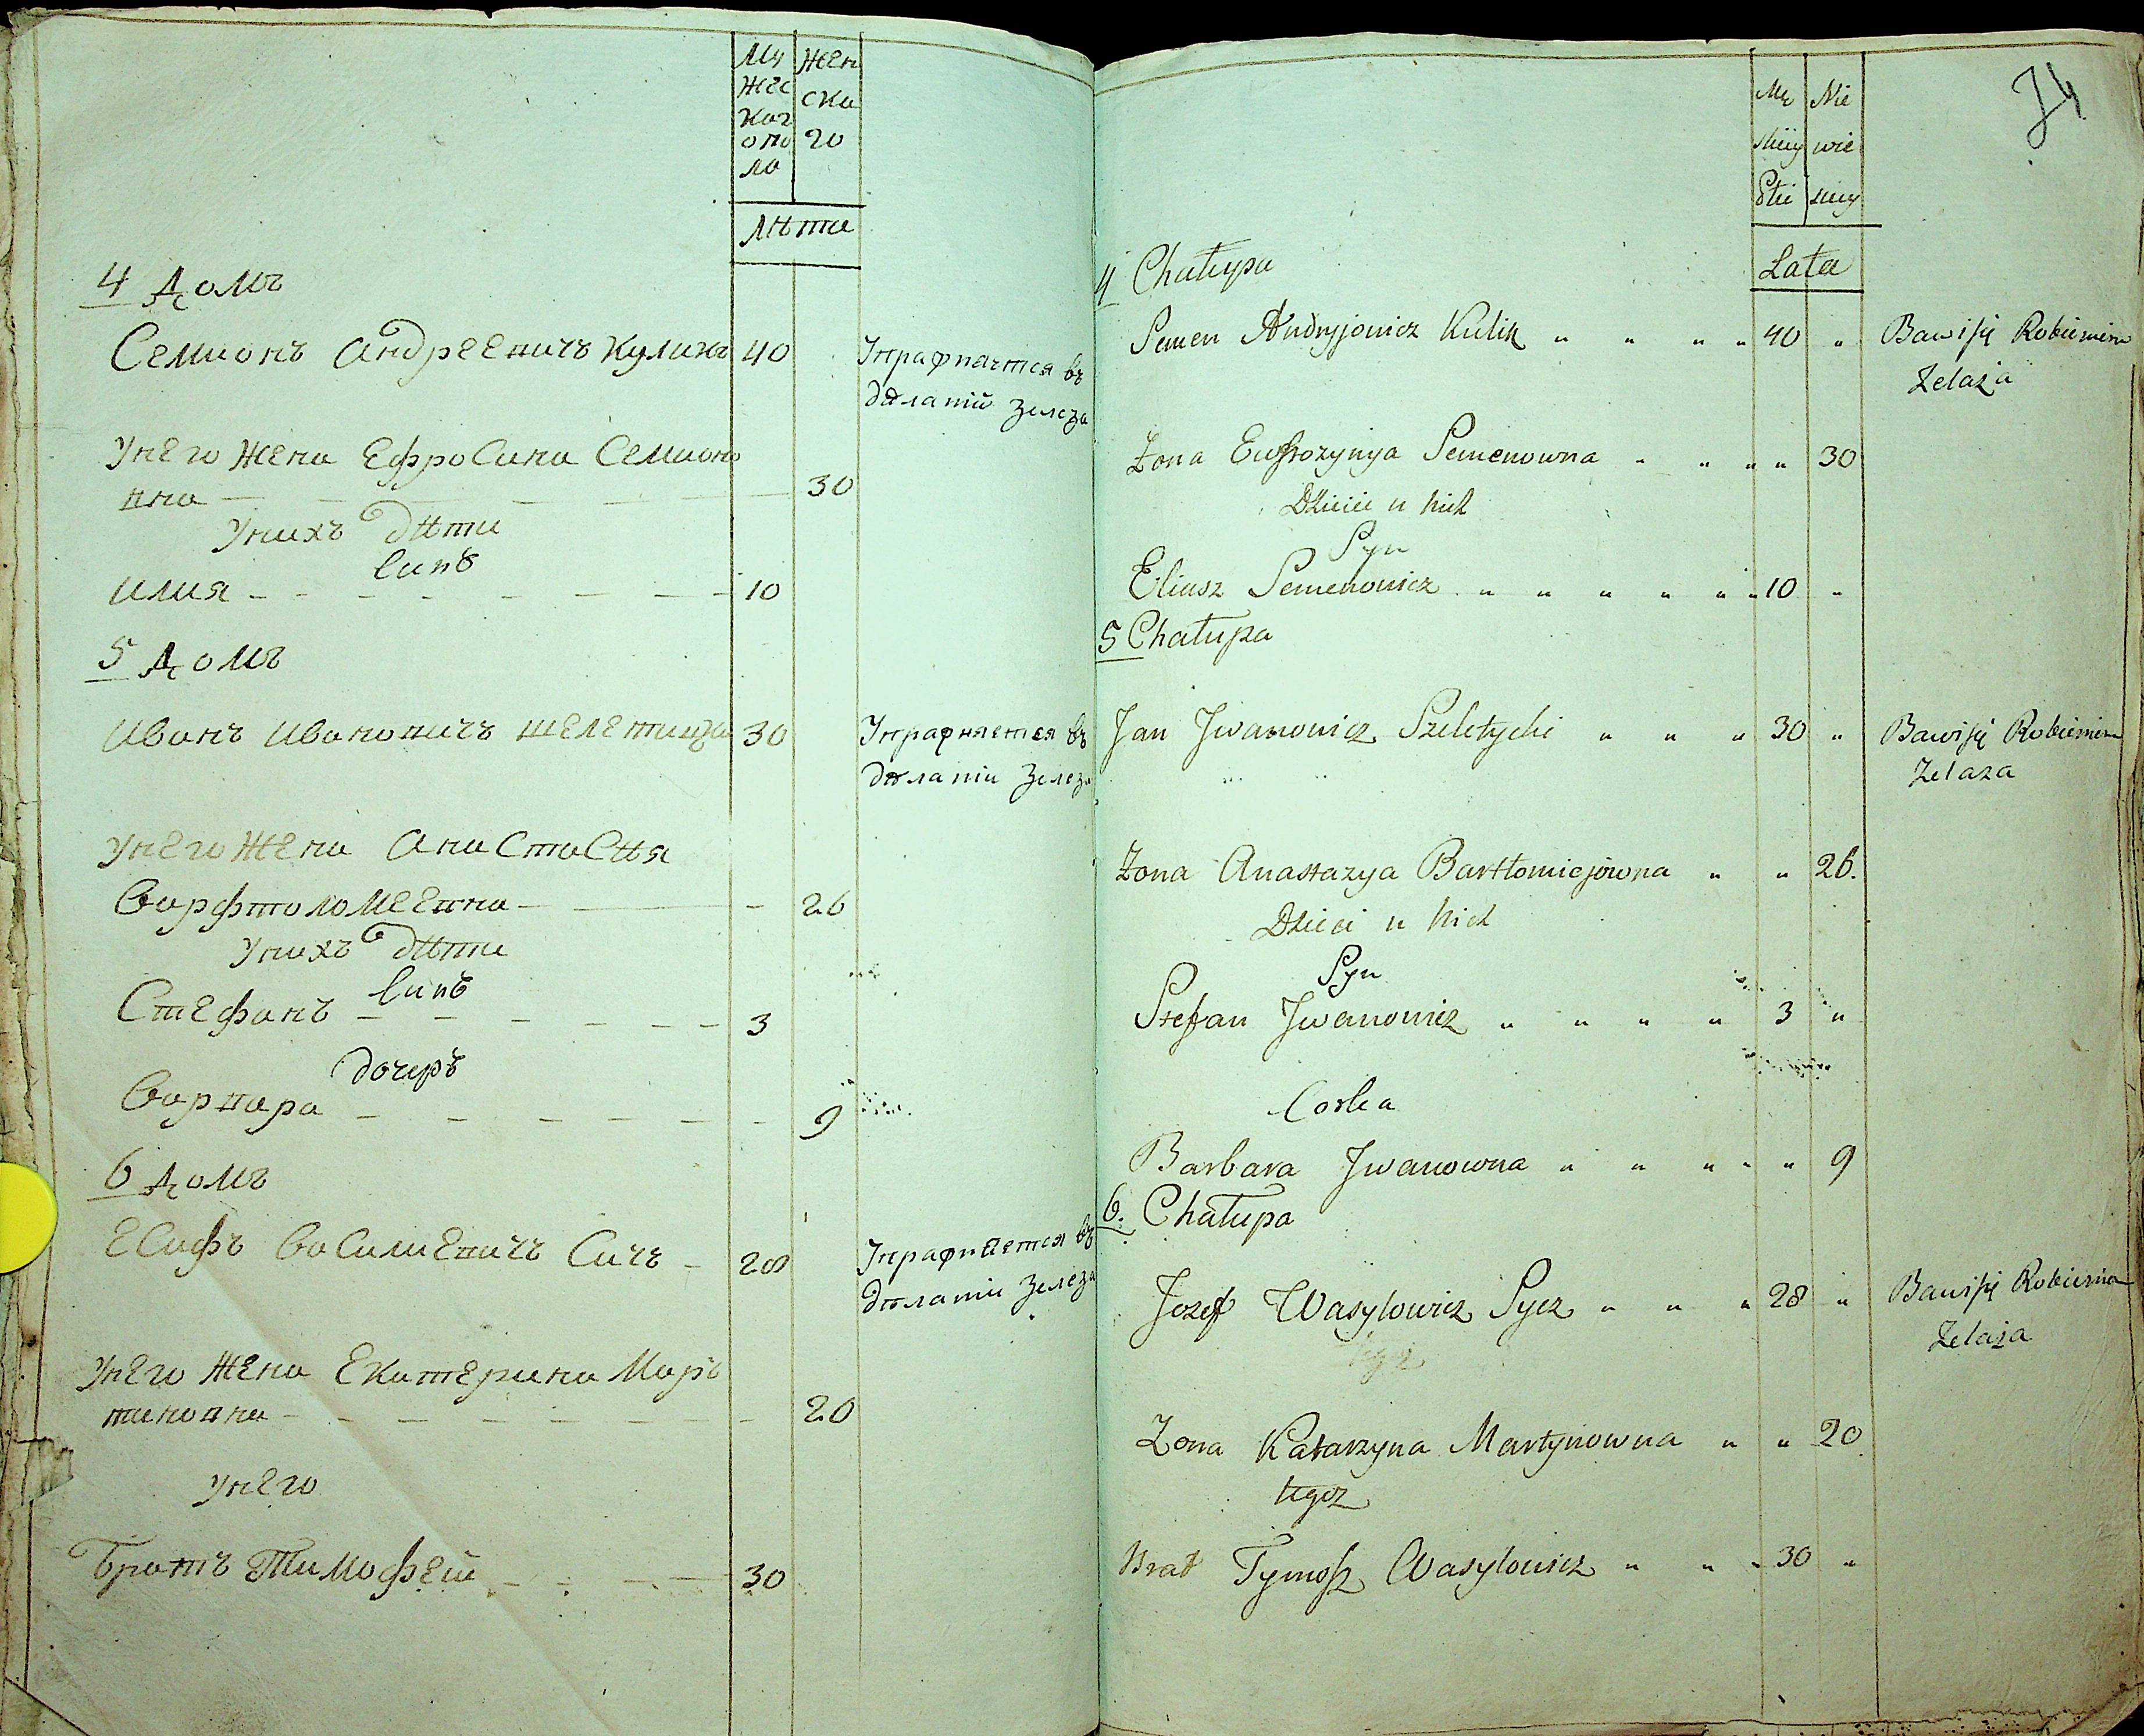 Му
жес
каг
о по
ла
Жен
ска
го
Лѣта
4 Домъ
Семионъ Андреевичъ Куликъ 40
Упрафняется въ
дѣланіи Зелеза
Унего Жена Ефросина Семионо
вна 30
Унихъ дѣти
Синъ
Илия 10
5 Домъ
Иванъ Ивановичъ 30
Упрафняется въ
дѣланіи Зелеза
Унего Жена Анастасѣя
Варфтоломеевна 26
Унихъ дѣти
Синъ
Стефанъ 3
дочеръ
Варвара 9
6 Домъ
Есифъ Василиевичъ Сичъ 28
Упрафняется въ
дѣланіи Зелеза
Унего Жена Екатерина Маръ
тиновна 20
Унего
Братъ Тимофей 30
74
Mę
skiey
Płci
Nie
wie
skiey
Lata
4 Chałupa
Semen Andryjowicz Kulik " " " " 40 "
Bawi się Robieniem
Zelaza
Zona Ewfrozynya Semenowna " " " " 30
Dzieci u nich
Syn
Eliasz Semenowicz " " " " " " 10 "
5 Chałupa
Jan Jwanowicz Szeletycki " " " 30 "
Bawi się Robieniem
Zelaza
Zona Anastazya Bartłomiejowna " " 26.
Dzieci u nich
Syn
Stefan Jwanowicz " " " " 3 "
Corka
Barbara Jwanowna " " " " " 9
6. Chałupa
Jozef Wasylowicz Sycz " " " 28 "
Bawi się Robieniem
Zelaza
Zona Katarzyna Martynowna " " 20
tegoz
Brat Tymosz Wasylowicz " " " 30 "